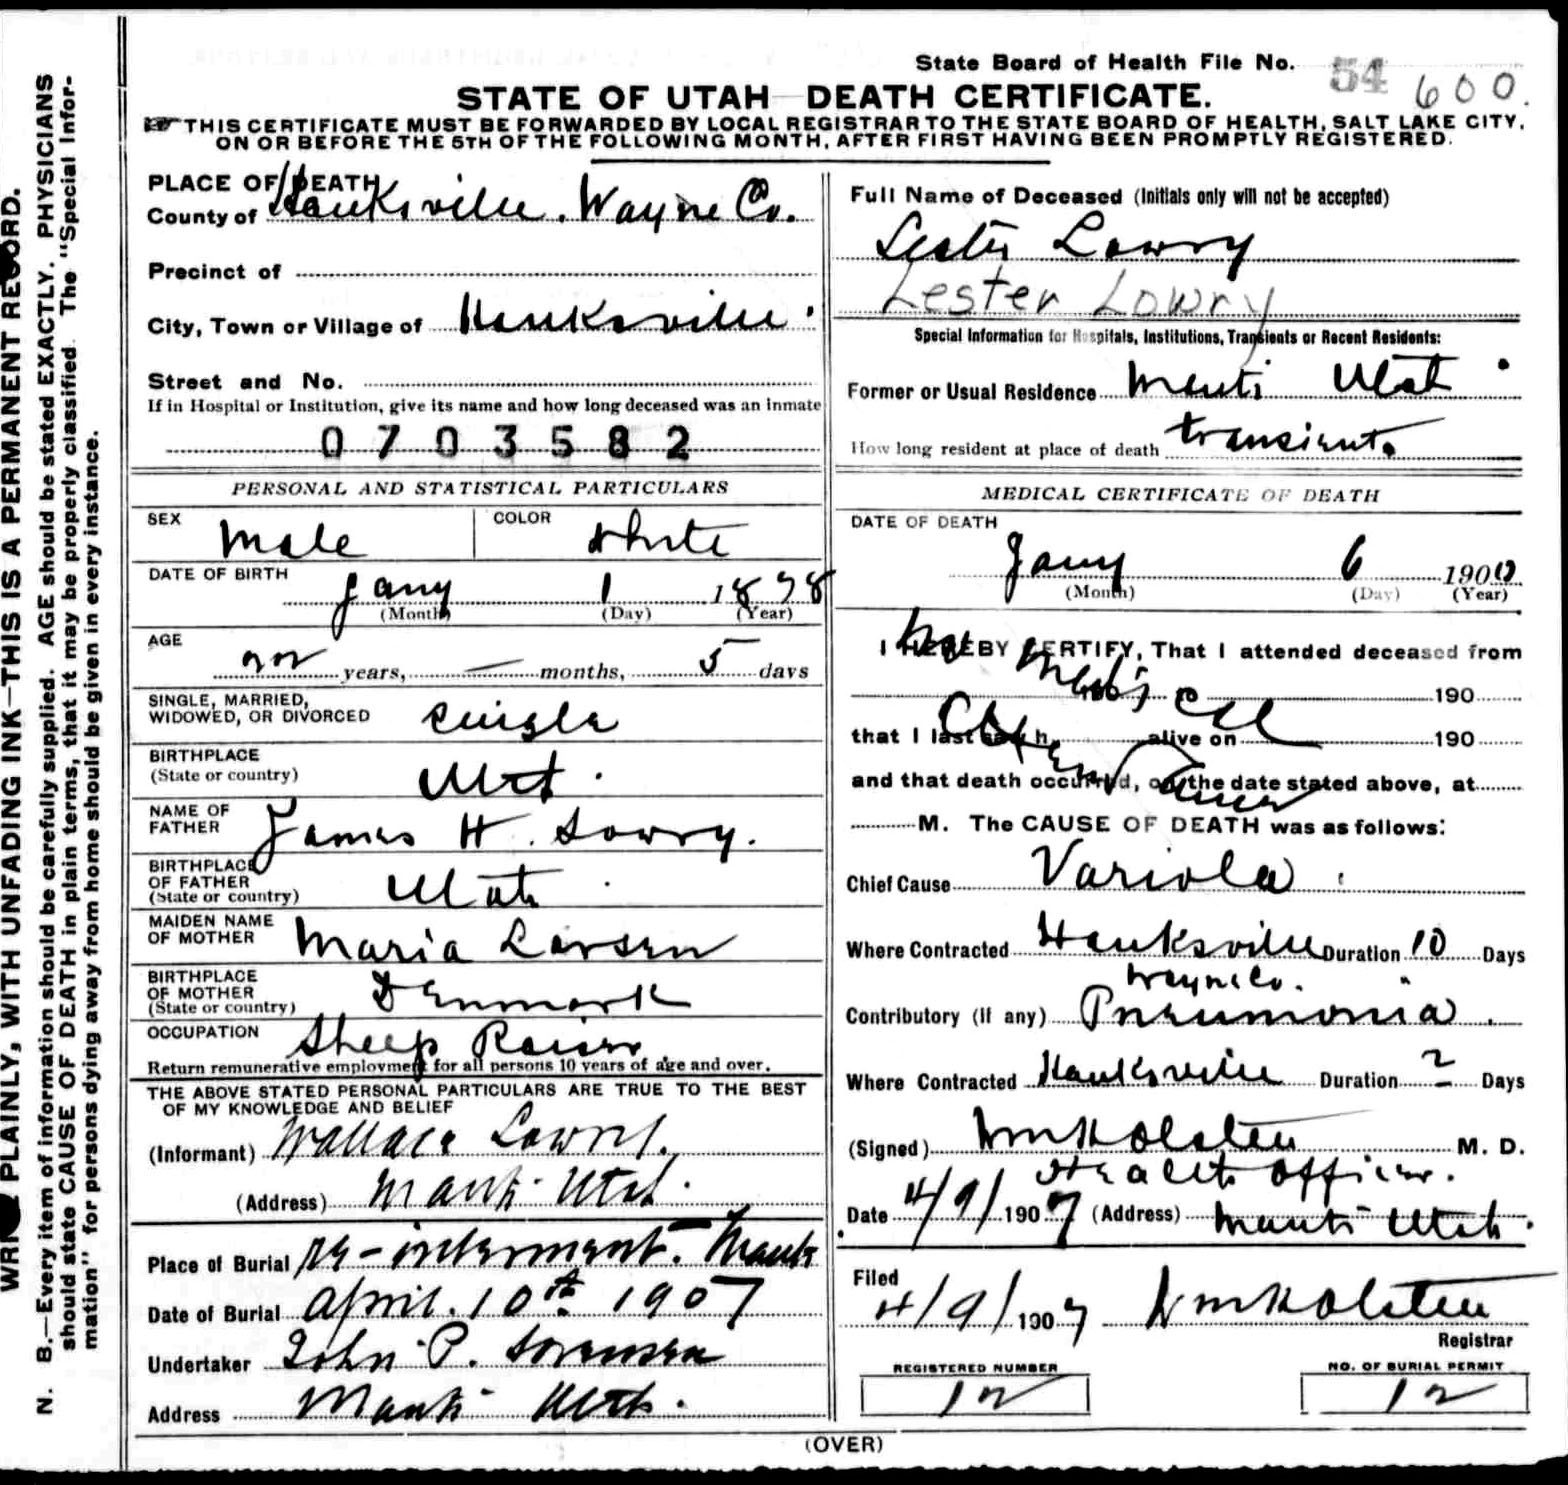 State Board of Health File No. 54 600.
STATE OF UTAH—DEATH CERTIFICATE.
THIS CERTIFICATE MUST BE FORWARDED BY LOCAL REGISTRAR TO THE STATE BOARD OF HEALTH, SALT LAKE CITY,
ON OR BEFORE THE 5TH OF THE FOLLOWING MONTH, AFTER FIRST HAVING BEEN PROMPTLY REGISTERED.
PLACE OF DEATH
County of Hanksville. Wayne Co.
Precinct of
City, Town or Village of Hanksville.
Street and No.
If in Hospital or Institution, give its name and how long deceased was an inmate
0703582
PERSONAL AND STATISTICAL PARTICULARS
SEX Male COLOR White
DATE OF BIRTH Jany 1 1878
(Month) (Day) (Year)
AGE
22 years, — months, 5 days
SINGLE, MARRIED,
WIDOWED, OR DIVORCED Single
BIRTHPLACE
(State or country) Utah.
NAME OF
FATHER James H. Lowry.
BIRTHPLACE
OF FATHER
(State or country) Utah.
MAIDEN NAME
OF MOTHER Maria Larsen
BIRTHPLACE
OF MOTHER
(State or country) Denmark
OCCUPATION Sheep Raiser.
Return remunerative employment for all persons 10 years of age and over.
THE ABOVE STATED PERSONAL PARTICULARS ARE TRUE TO THE BEST
OF MY KNOWLEDGE AND BELIEF
(Informant) Wallace Lowry.
(Address) Manti Utah.
Place of Burial re-interment. Manti
Date of Burial April. 10th 1907
Undertaker John P. Sorensen
Address Manti Utah.
Full Name of Deceased (Initials only will not be accepted)
Lester Lowry
Lester Lowry
Special Information for Hospitals, Institutions, Transients or Recent Residents:
Former or Usual Residence Manti Utah.
How long resident at place of death transient.
MEDICAL CERTIFICATE OF DEATH
DATE OF DEATH
Jany 6 1900
(Month) (Day) (Year)
I HEREBY CERTIFY, That I attended deceased from
No 190
that I last saw h alive on 190
and that death occurred, on the date stated above, at
M. The CAUSE OF DEATH was as follows:
Chief Cause Variola.
Where Contracted Hanksville Duration 10 Days
Wayne Co.
Contributory (if any) Pneumonia.
Where Contracted Hanksville Duration 2 Days
(Signed) Wm K Olsten M. D.
Health Officer.
Date 4/9/1907 (Address) Manti Utah.
Filed
4/9/1907 Wm K Olsten
Registrar
REGISTERED NUMBER
12
NO. OF BURIAL PERMIT
12
(OVER)
N. B.—Every item of information should be carefully supplied. AGE should be stated EXACTLY. PHYSICIANS
should state CAUSE OF DEATH in plain terms, that it may be properly classified. The "Special Infor-
mation" for persons dying away from home should be given in every instance.
PLAINLY, WITH UNFADING INK—THIS IS A PERMANENT RECORD.